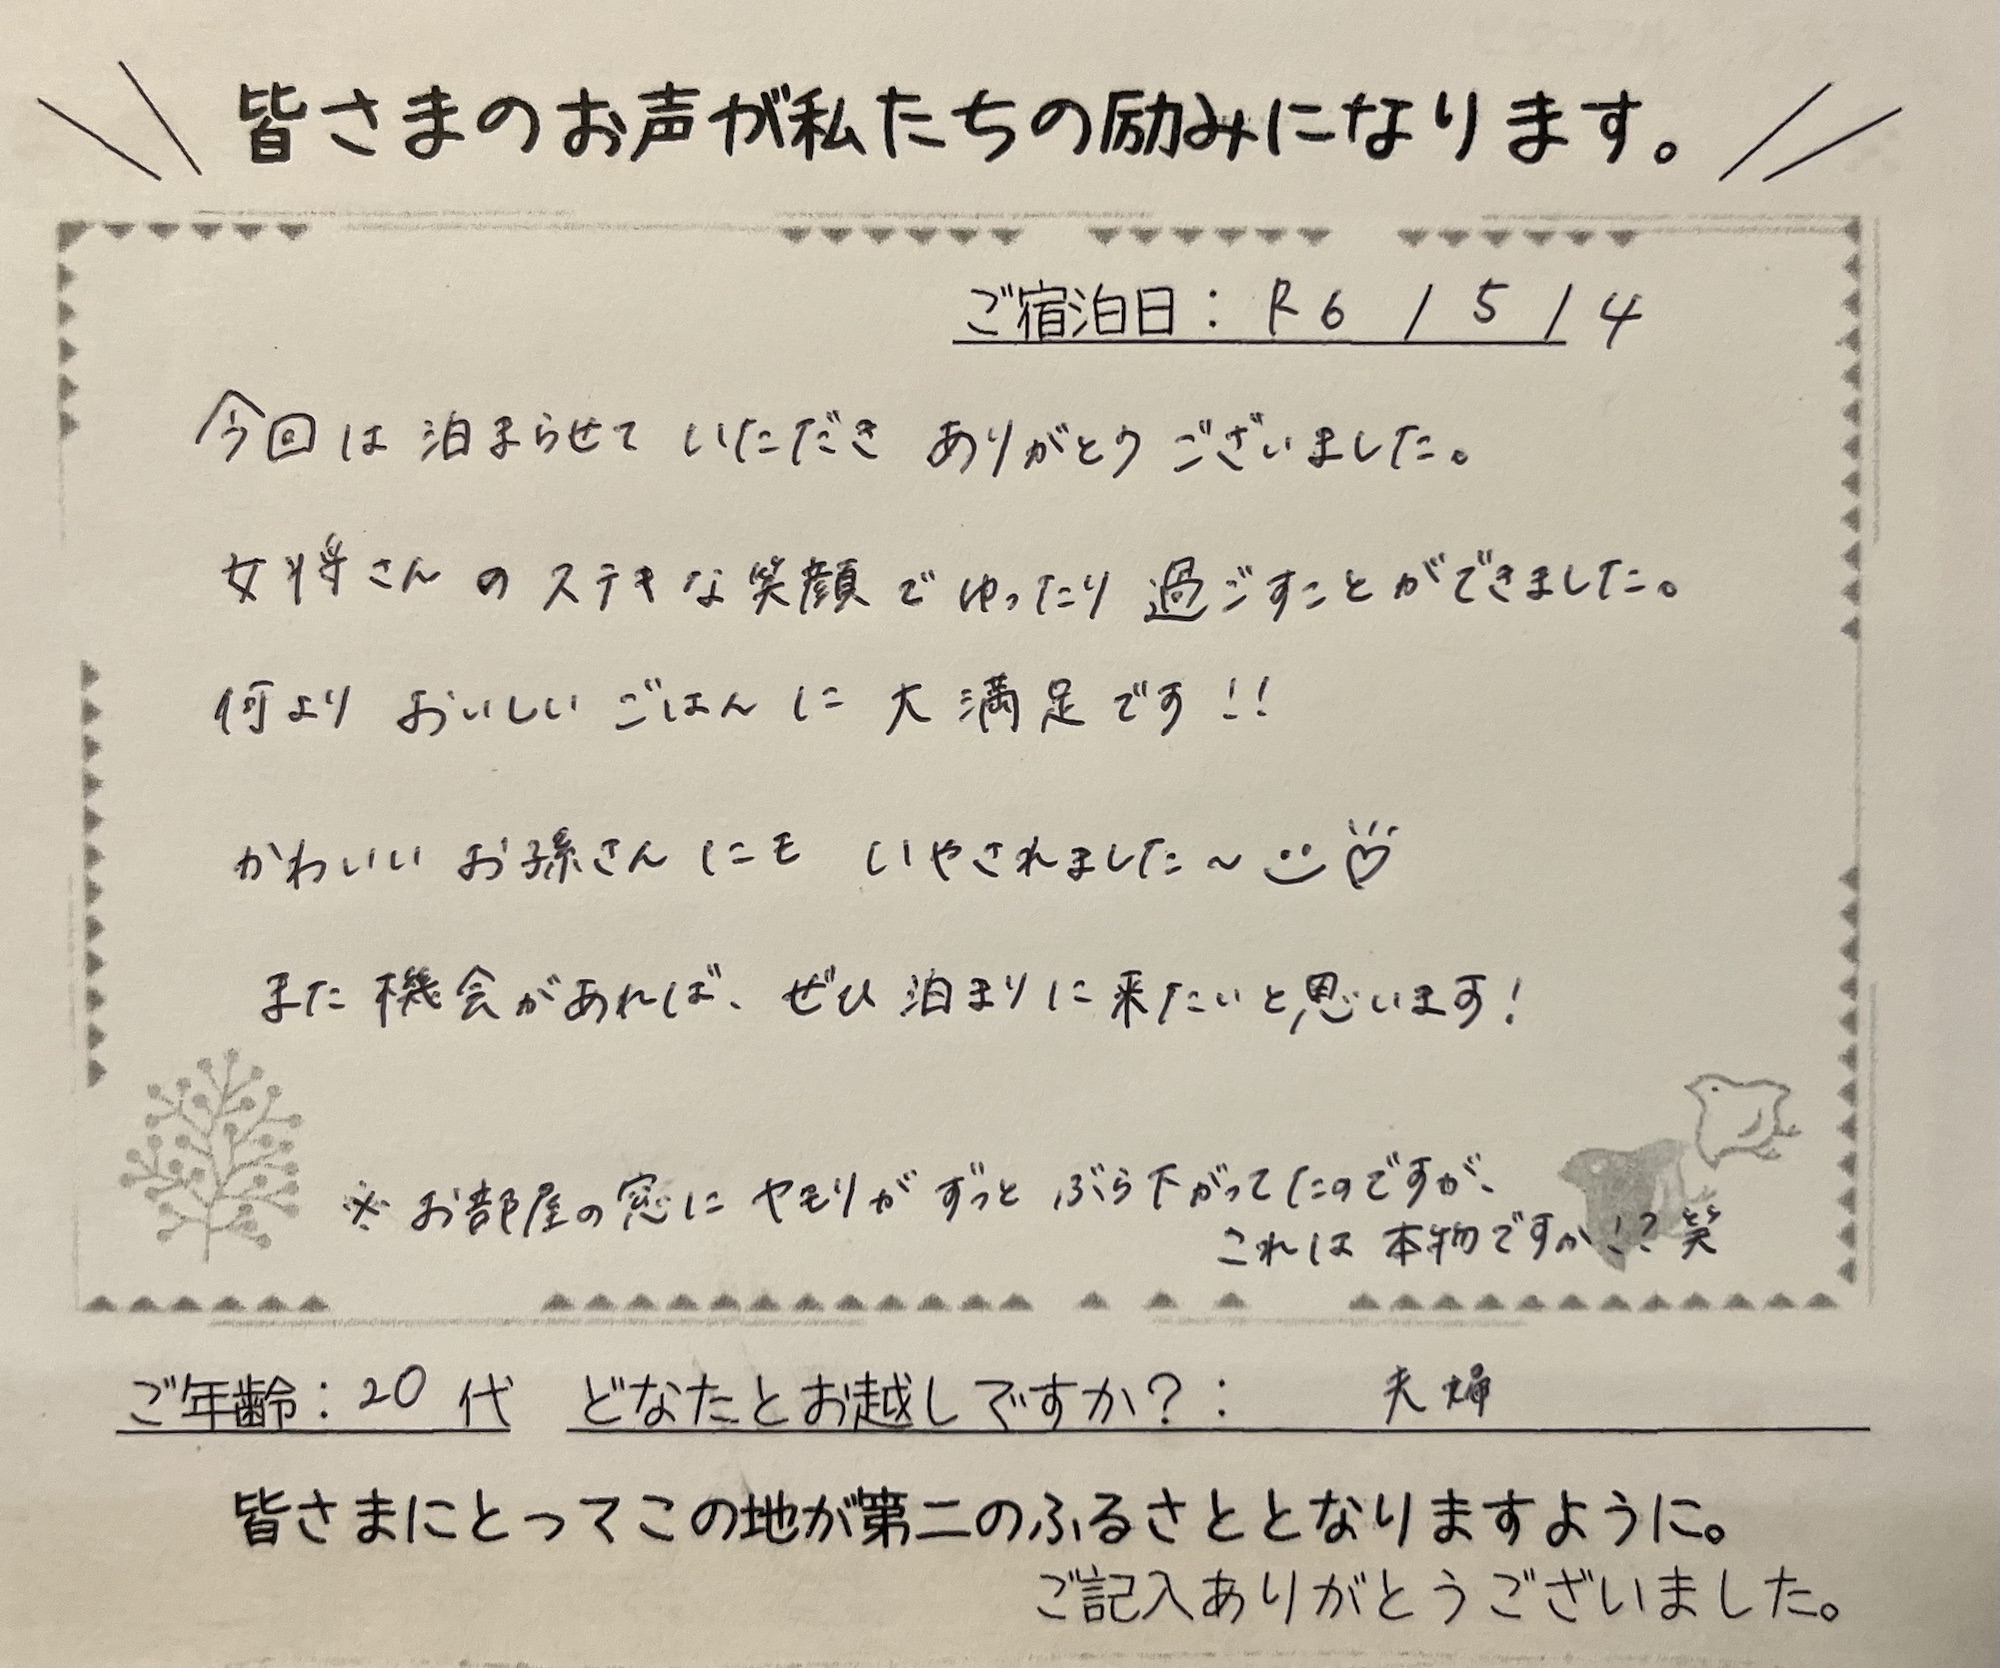 皆さまのお声が私たちの励みになります。
ご宿泊日：R6/5/4
今回は泊まらせていただきありがとうございました。
女将さんのステキな笑顔でゆったり過ごすことができました。
何よりおいしいごはんに大満足です!!
かわいいお孫さんにもいやされました〜
また機会があれば、ぜひ泊まりに来たいと思います!
※お部屋の窓にヤモリがずっとぶら下がってたのですが、
これは本物ですか!?笑
ご年齢：20代 どなたとお越しですか？： 夫婦
皆さまにとってこの地が第二のふるさととなりますように。
ご記入ありがとうございました。